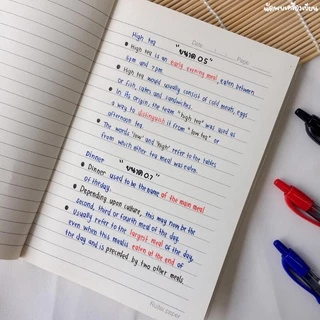 Date Page
"ขนาด 0.5"
High tea
• High tea is an early evening meal, eaten between
5pm and 7pm.
• High tea would usually consist of cold meats, eggs
or fish, cakes and sandwiches.
• In its origin, the term "high tea" was used as
a way to distinguish it from "low tea" or
afternoon tea.
• The words 'low' and 'high' refer to the tables
from which either tea meal was eaten.
"ขนาด 0.7"
Dinner
• Dinner used to be the name of the main meal
of the day.
• Depending upon culture, this may now be the
second, third or fourth meal of the day.
usually refer to the largest meal of the day,
even when this meal is eaten at the end of
the day and is preceded by two other meals.